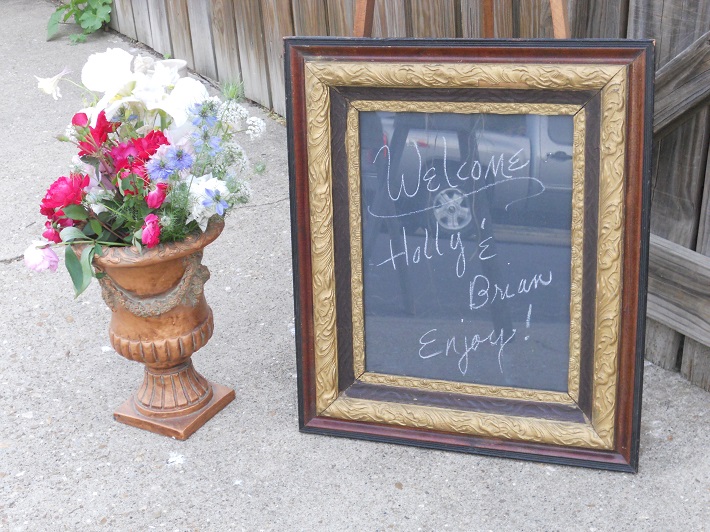 Welcome
Holly &
Brian
Enjoy!